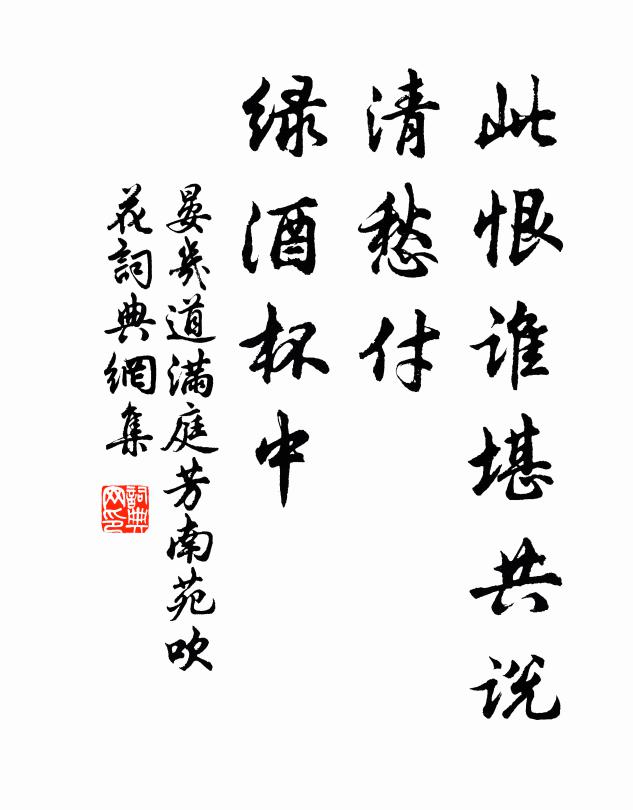 此恨谁堪共说
清愁付
绿酒杯中
晏幾道满庭芳南苑吹
花詞典網集
詞典网印